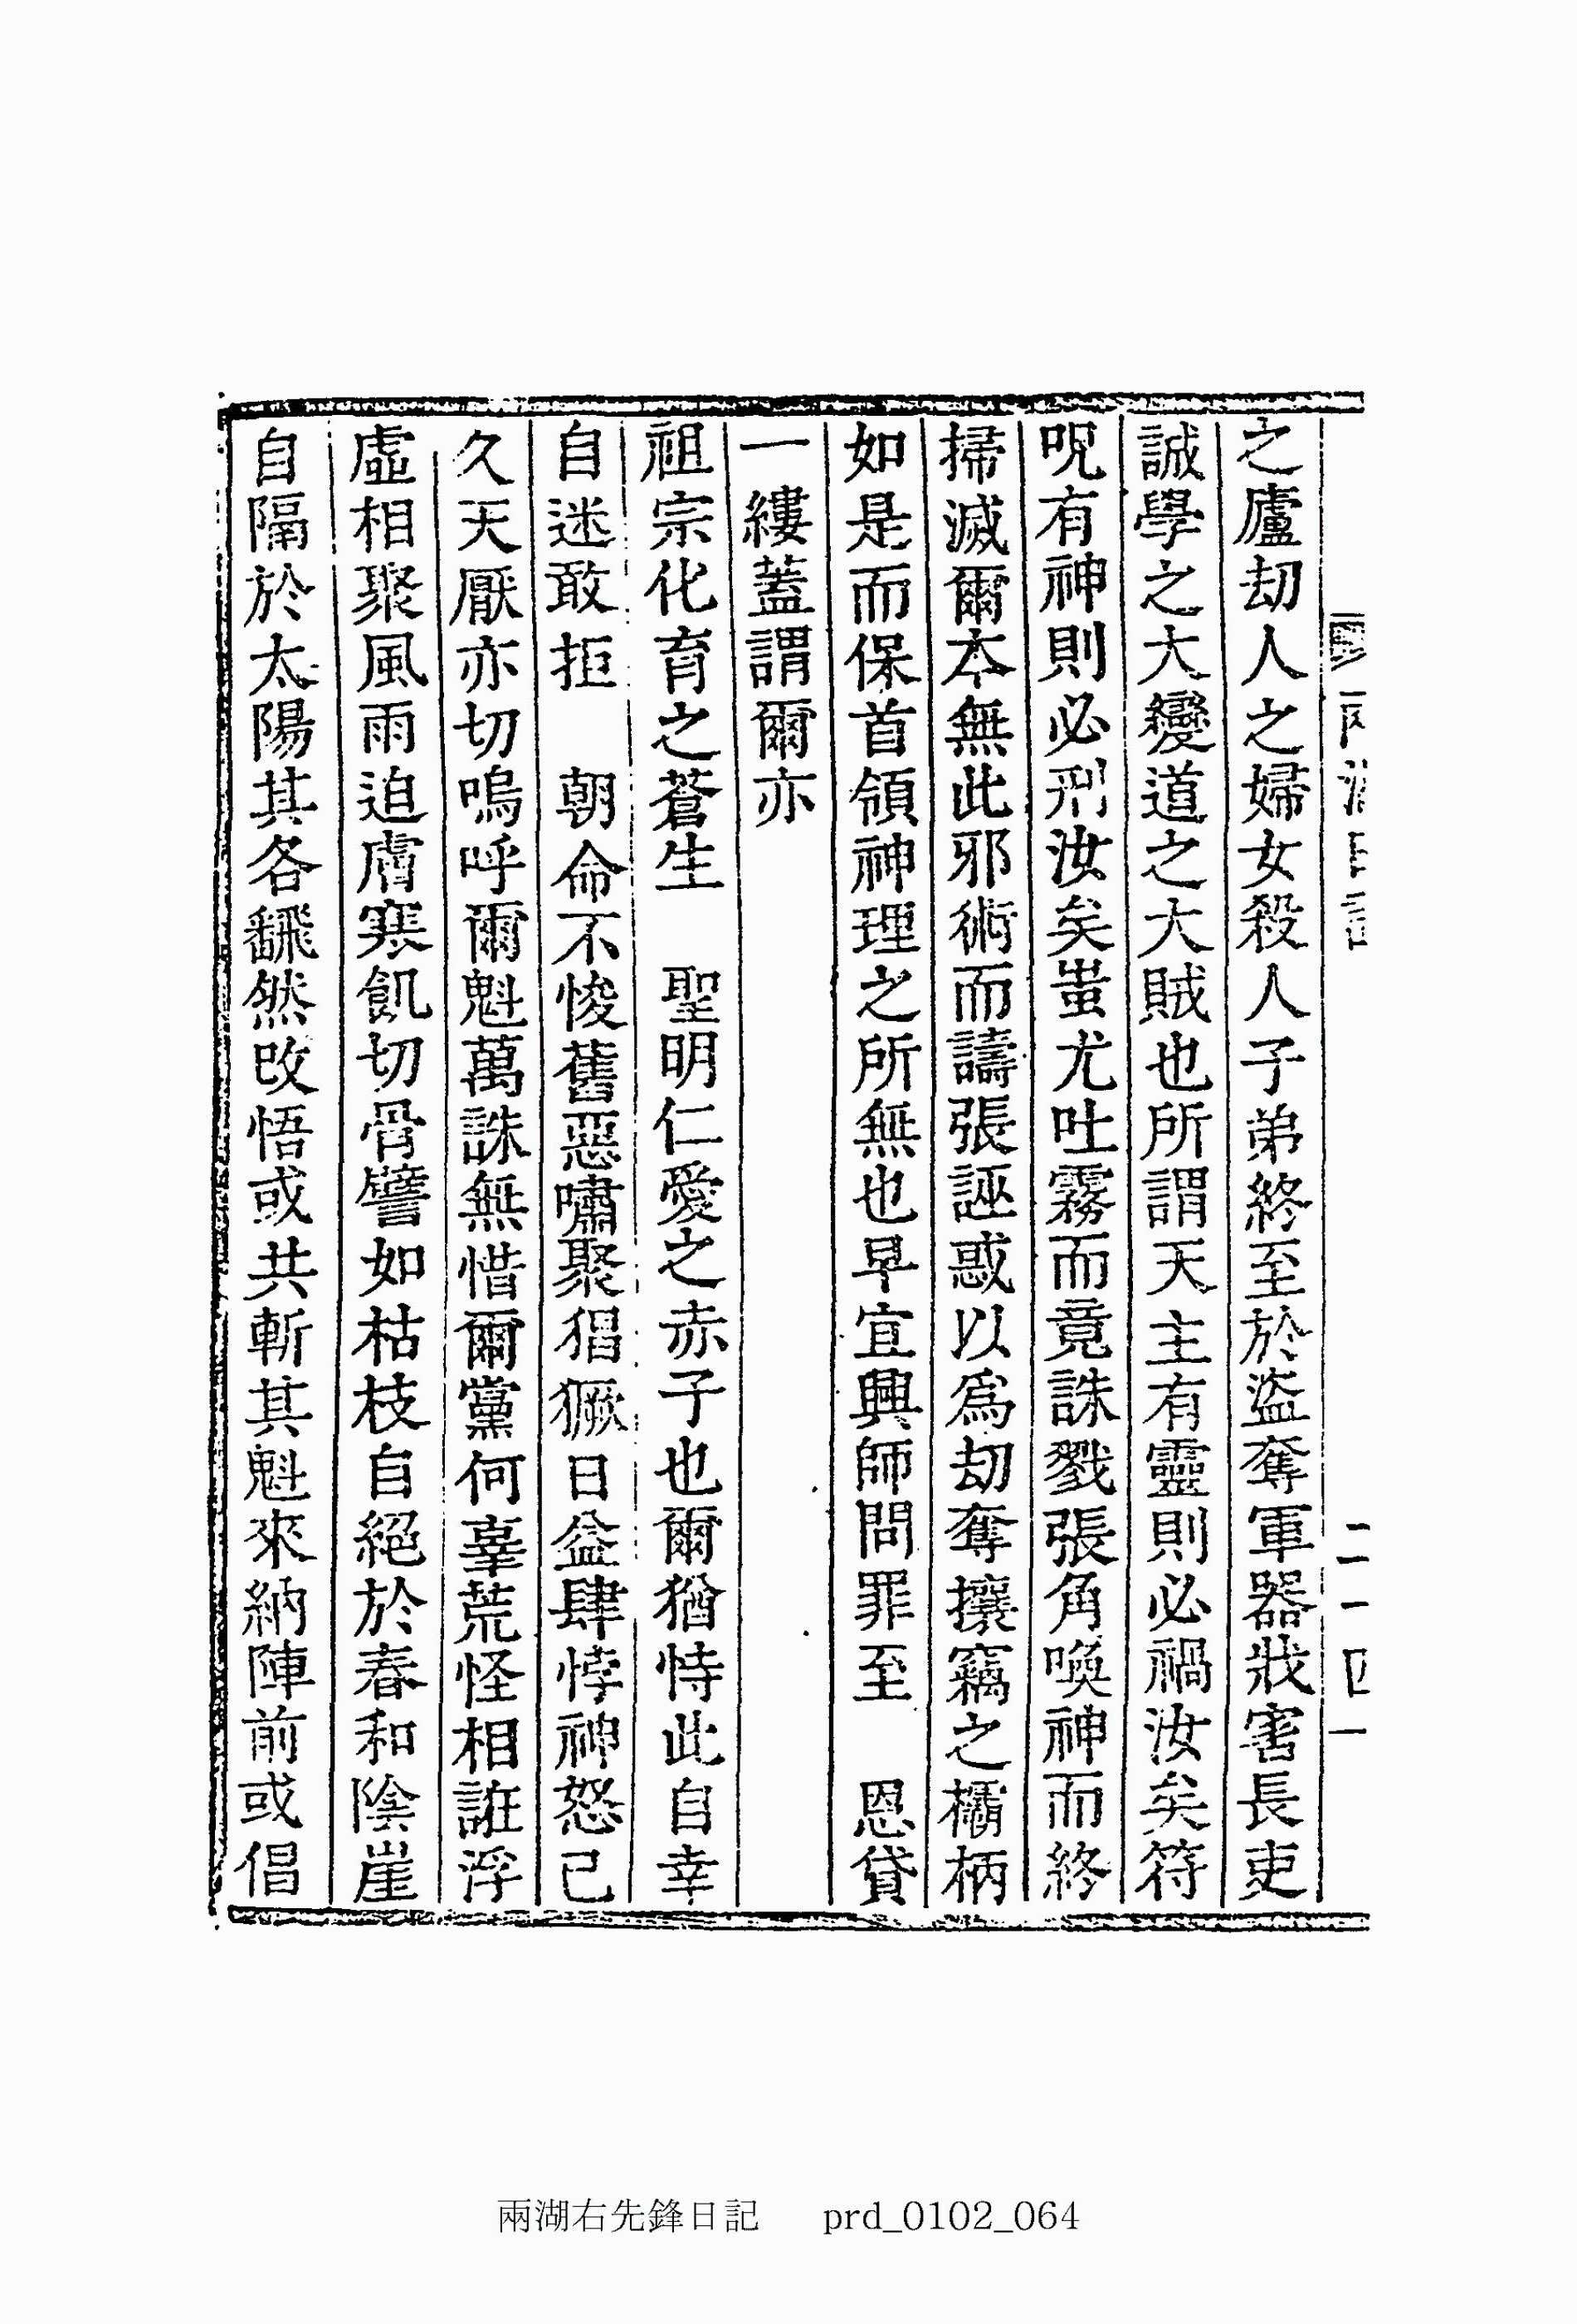 之廬刧人之婦女殺人子弟終至於盜奪軍器戕害長吏
誠學之大變道之大賊也所謂天主有靈則必禍汝矣符
呪有神則必刑汝矣蚩尤吐霧而竟誅戮張角喚神而終
掃滅爾本無此邪術而譸張誣惑以爲刧奪攘竊之欛柄
如是而保首領神理之所無也早宜興師問罪至　恩貸
一縷蓋謂爾亦
祖宗化育之蒼生　聖明仁愛之赤子也爾猶恃此自幸
自迷敢拒　朝命不悛舊惡嘯聚猖獗日益肆悖神怒已
久天厭亦切嗚呼爾魁萬誅無惜爾黨何辜荒怪相誑浮
虛相聚風雨迫膚寒飢切骨譬如枯枝自絕於春和陰崖
自隔於太陽其各飜然改悟或共斬其魁來納陣前或倡
兩湖右先鋒日記 prd_0102_064